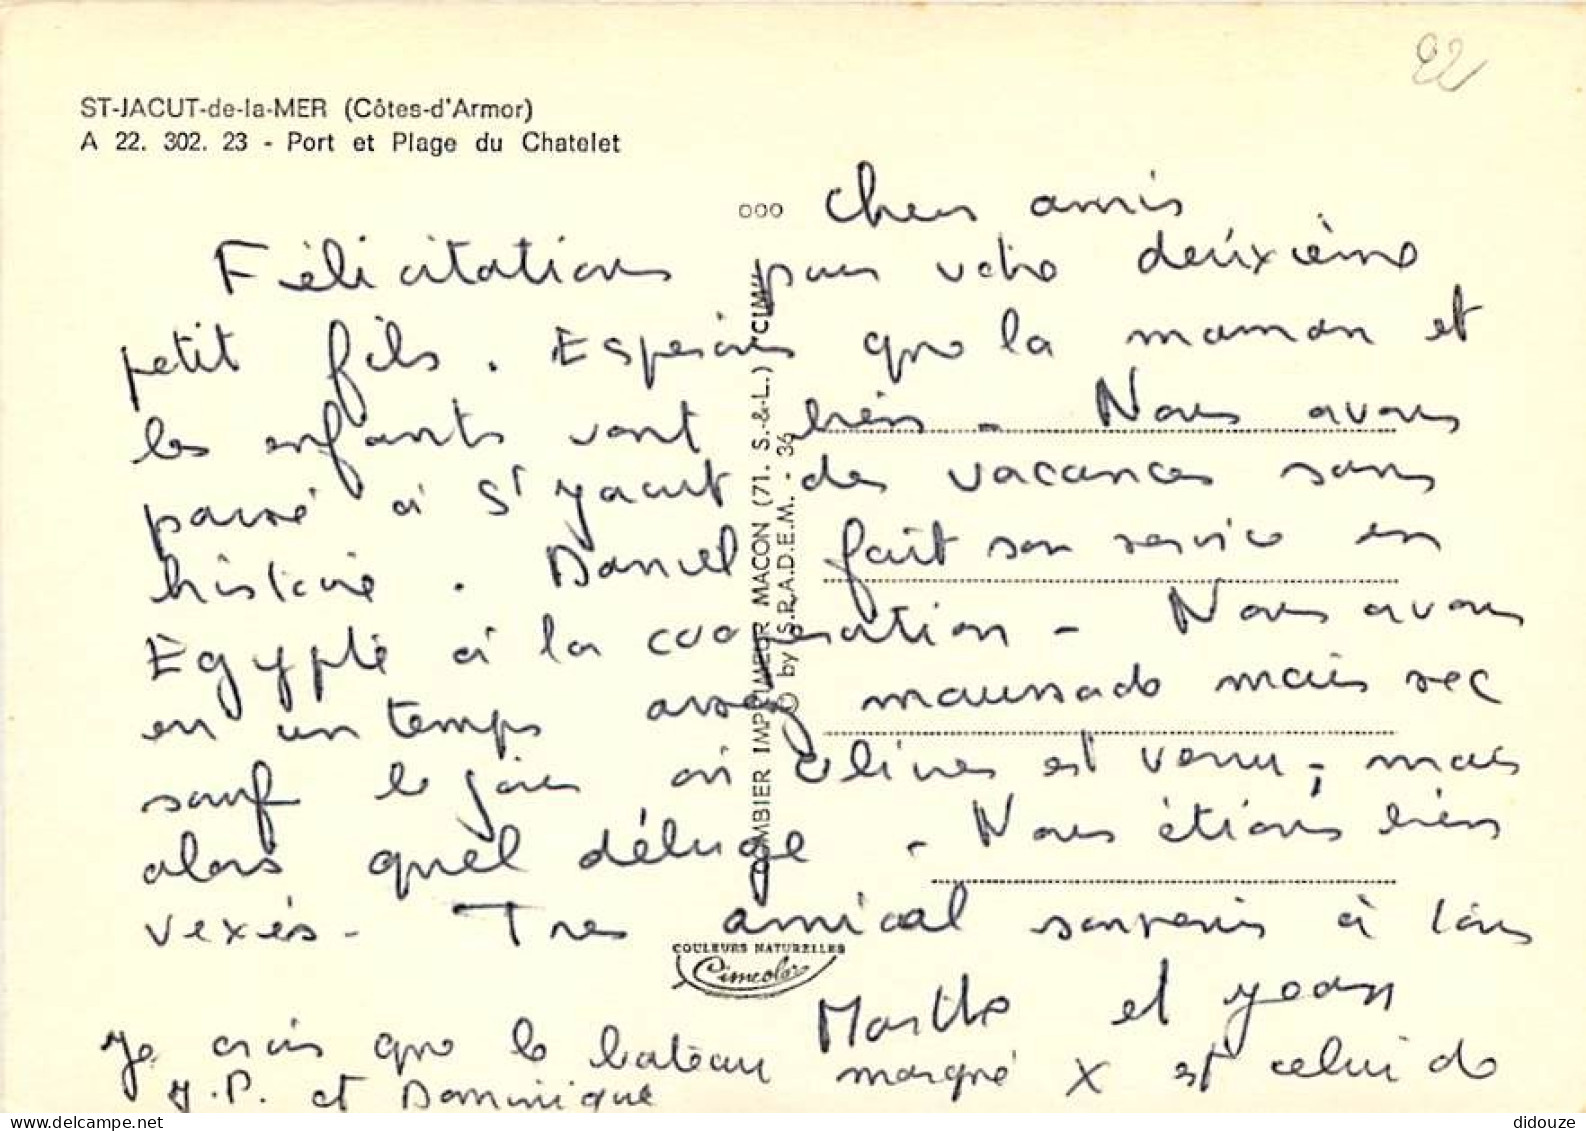 22
ST-JACUT-de-la-MER (Côtes-d'Armor)
A 22. 302. 23 - Port et Plage du Chatelet
Chers amis
Félicitations pour votre deuxième
petit fils. Espérons que la maman et
les enfants vont bien - Nous avons
passé à St Jacut des vacances sans
histoire. Daniel fait son service en
Egypte à la coopération - Nous avons
eu un temps assez maussade mais sec
sauf le jour où est venu, mais
alors quel déluge - Nous étions bien
vexés - Tres amical souvenir à tous
Marthe et Yoann
Je crois que le bateau marqué X est celui de
J.P. et Dominique
COMBIER IMPRIMEUR MACON (71. S.-&-L.) "CIM"
© by S.P.A.D.E.M. - 36
COULEURS NATURELLES
Cimcolor
didouze